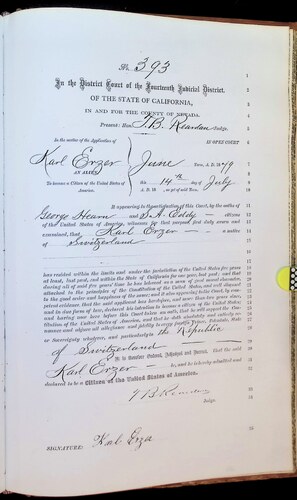 No. 393
In the District Court of the Fourteenth Judicial District.
OF THE STATE OF CALIFORNIA,
IN AND FOR THE COUNTY OF NEVADA.
Present: Hon. T. B. Reardan Judge.
In the matter of the Application of
IN OPEN COURT
Karl Erzer
June Term, A. D. 1879
AN ALIEN,
To become a Citizen of the United States of America.
this 14th day of July
A. D. 18 , as yet of said Term.
It appearing to the satisfaction of this Court, by the oaths of
George Hearn and S. A. Eddy citizens
of the United States of America, witnesses for that purpose first duly sworn and
examined, that Karl Erzer a native
of Switzerland
has resided within the limits and under the jurisdiction of the United States five years
at least, last past, and within the State of California for one year, last past; and that
during all of said five years' time he has behaved as a man of good moral character,
attached to the principles of the Constitution of the United States, and well disposed
to the good order and happiness of the same; and it also appearing to the Court, by com-
petent evidence, that the said applicant has heretofore, and more than two years since,
and in due form of law, declared his intention to become a citizen of the United States
and having now here before this Court taken an oath, that he will support the Con-
stitution of the United States of America, and that he doth absolutely and entirely re-
nounce and abjure all allegiance and fidelity to every foreign Prince, Potentate, State
or Sovereignty whatever, and particularly to the Republic
of Switzerland
It is therefore Ordered, Adjudged and Decreed, that the said
Karl Erzer be, and he is hereby admitted and
declared to be a Citizen of the United States of America.
Judge.
SIGNATURE: Karl Erzer